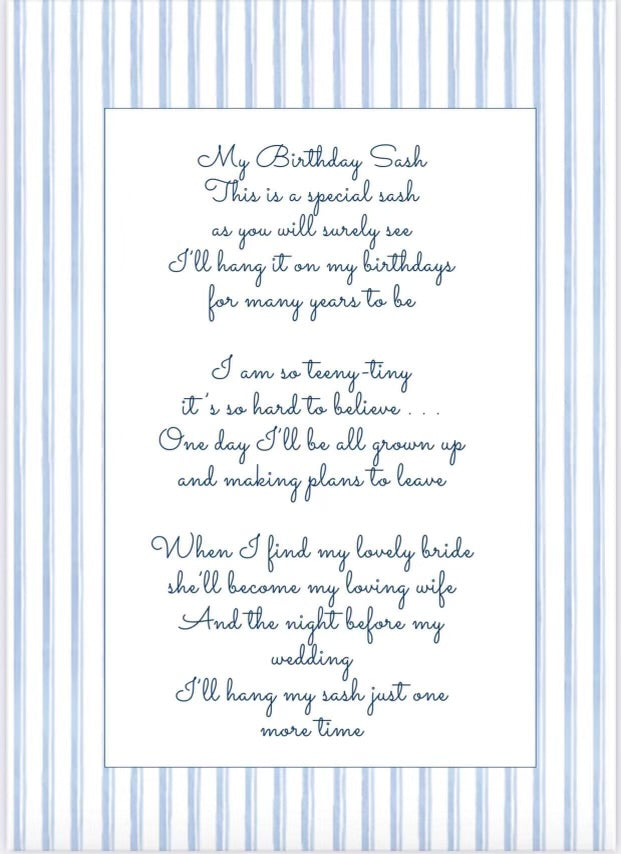 My Birthday Sash
This is a special sash
as you will surely see
I'll hang it on my birthdays
for many years to be
I am so teeny-tiny
it's so hard to believe . . .
One day I'll be all grown up
and making plans to leave
When I find my lovely bride
she'll become my loving wife
And the night before my
wedding
I'll hang my sash just one
more time